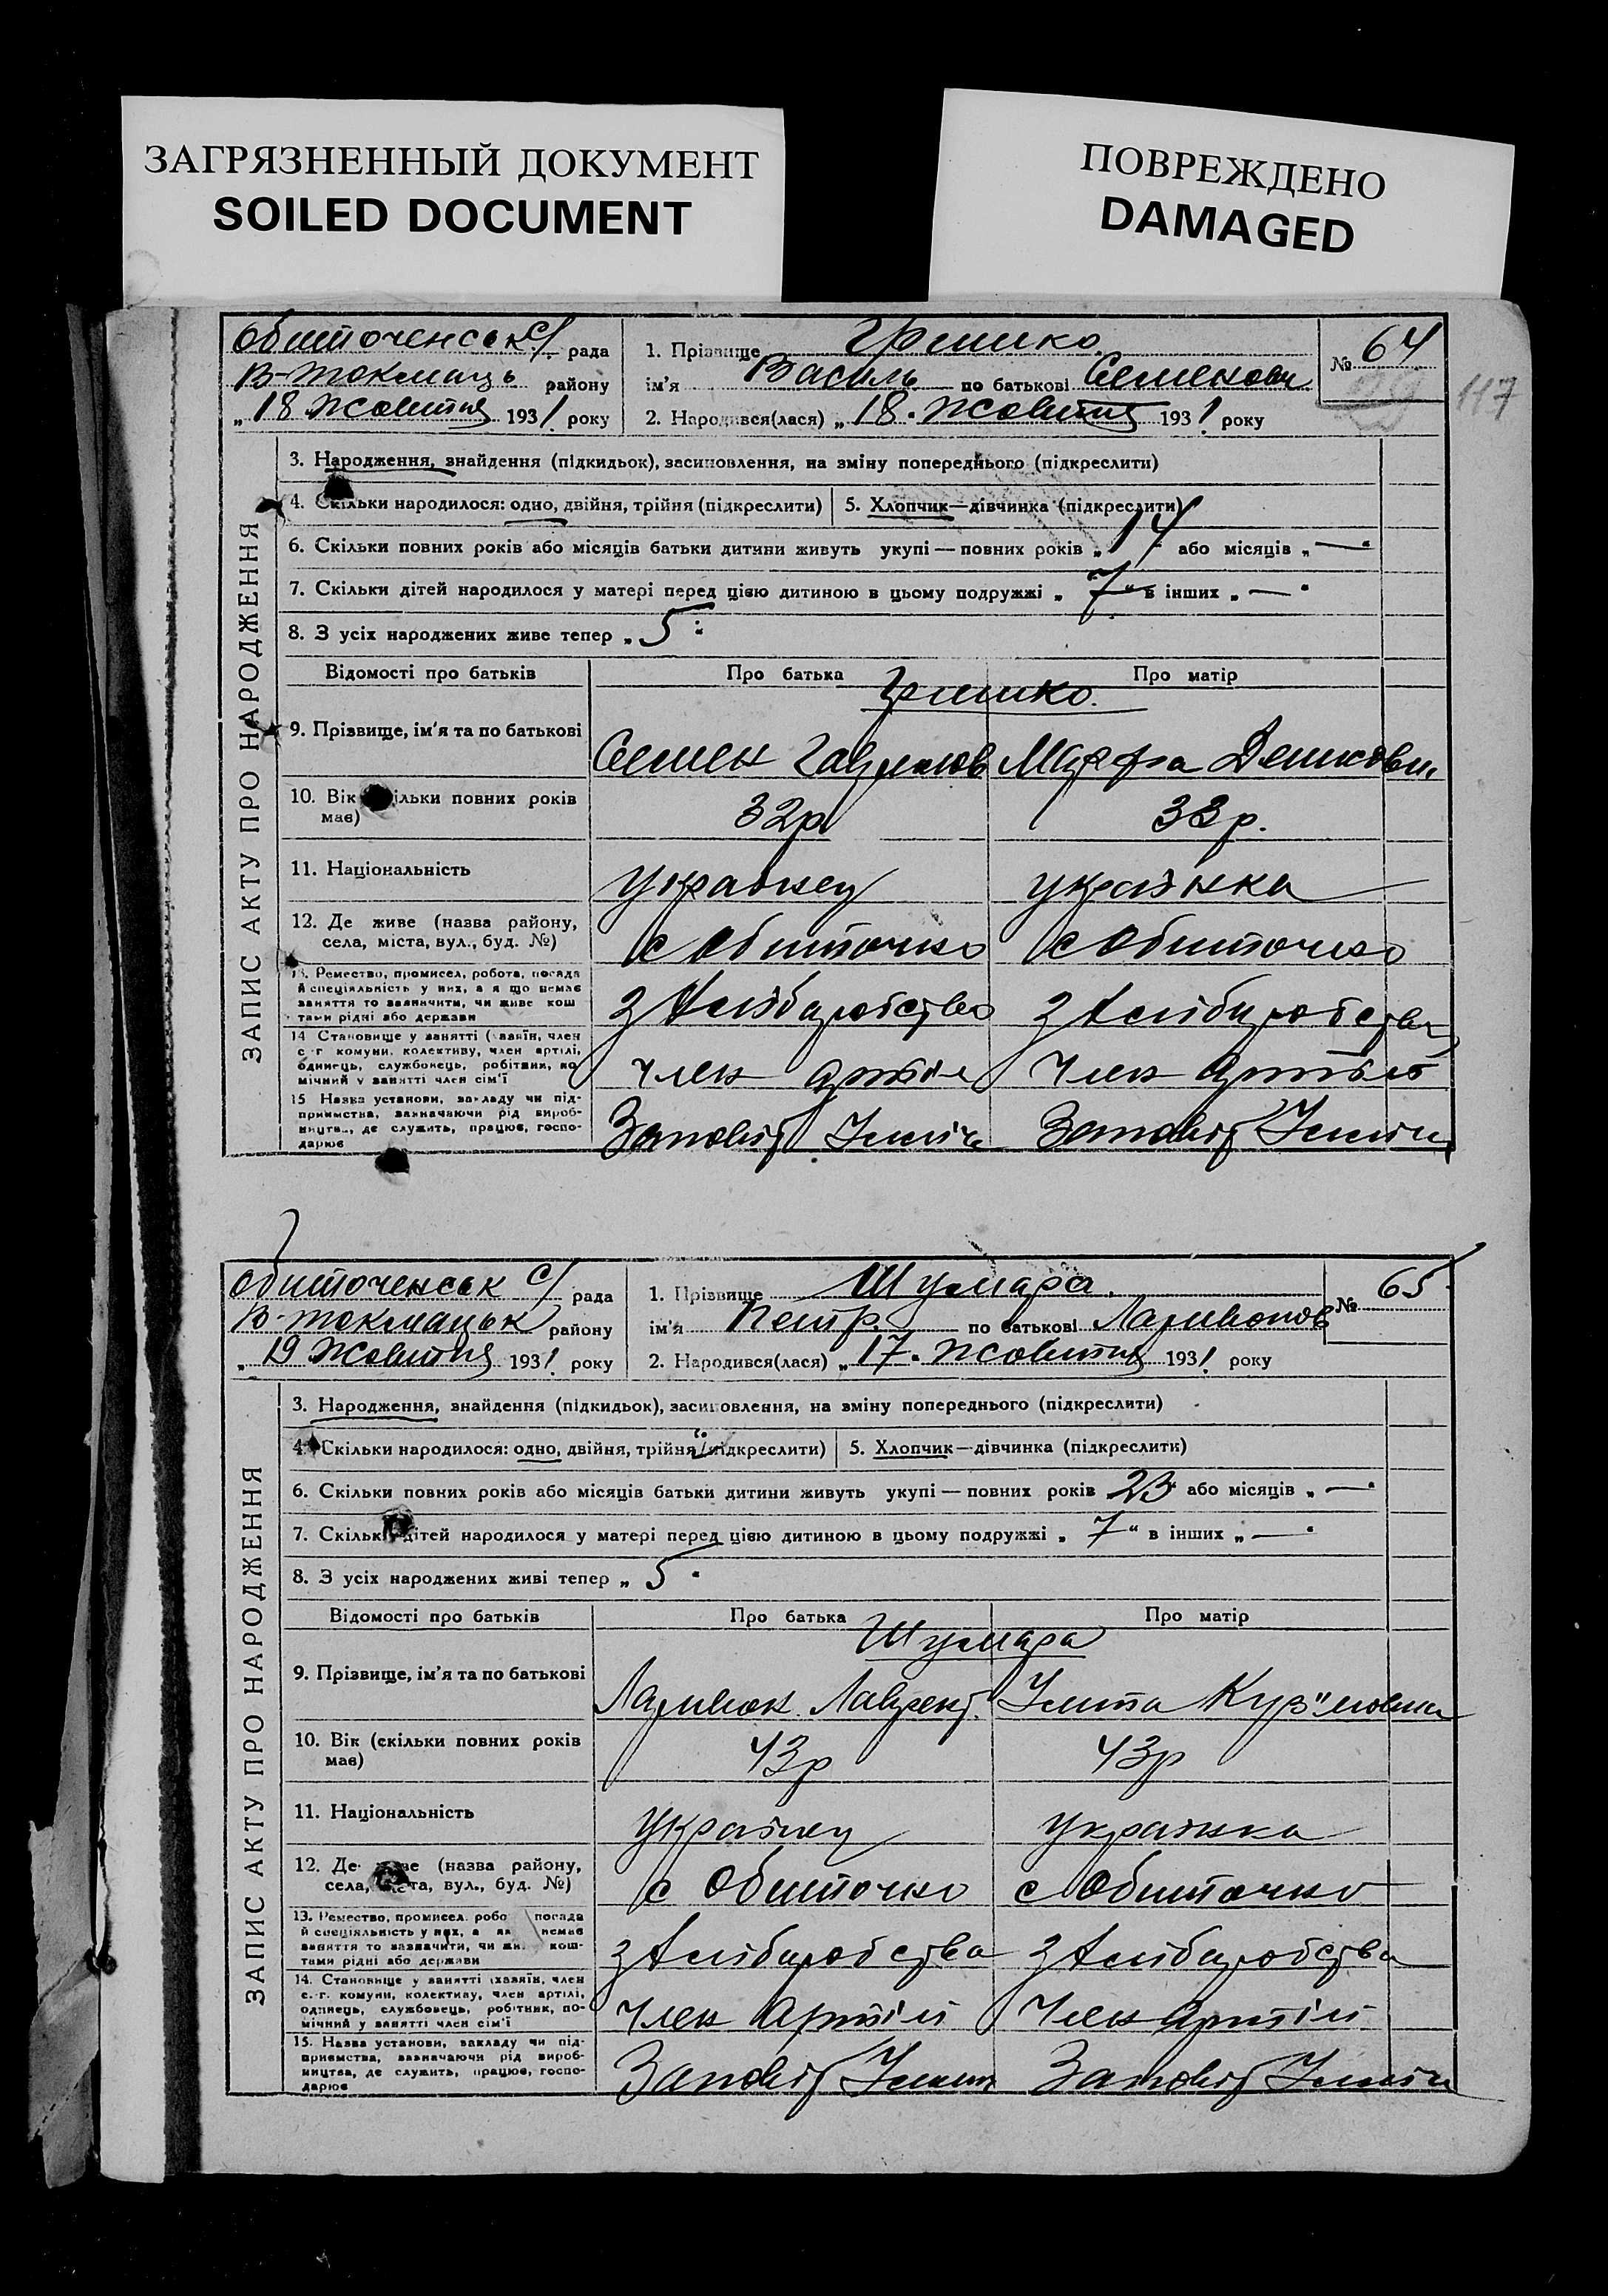 ЗАГРЯЗНЕННЫЙ ДОКУМЕНТ
SOILED DOCUMENT
ПОВРЕЖДЕНО
DAMAGED
Обиточенськ с/ рада
В-Токмаць району
„18 Жовтня 1931 року
1. Прізвище Гришко
ім'я Василь по батькові Семенович
2. Народився(лася) „18. Жовтня 1931 року
№ 64
117
ЗАПИС АКТУ ПРО НАРОДЖЕННЯ
3. Народження, знайдення (підкидьок), засиновлення, на зміну попереднього (підкреслити)
4. Скільки народилося: одно, двійня, трійня (підкреслити) 5. Хлопчик—дівчинка (підкреслити)
6. Скільки повних років або місяців батьки дитини живуть укупі — повних років „14" або місяців „—"
7. Скільки дітей народилося у матері перед цією дитиною в цьому подружжі „7" в інших „—"
8. З усіх народжених живе тепер „5"
Відомості про батьків Про батька Про матір
Гришко.
9. Прізвище, ім'я та по батькові Семен Гаврилов Марфа
10. Вік (скільки повних років має) 32р 33р.
11. Національність Українец Українка
12. Де живе (назва району, села, міста, вул., буд. №) с Обиточно с Обиточно
13. Ремество, промисел, робота, посада
й спеціяльність у них, а я що немає
заняття то зазначити, чи живе кош
тами рідні або держави
14 Становище у занятті (хазяїн, член
с.-г комуни, колективу, член артілі,
одинець, службовець, робітник, по
мічний у занятті член сім'ї
Член артіли Член Артіли
15 Назва установи, закладу чи під-
приємства, зазначаючи рід вироб-
ництва, де служить, працює, госпо-
дарює
Заповіт Ілліча Заповіт Ілліча
Обиточенськ с/ рада
В-Токмацьк району
„19 Жовтня 1931 року
1. Прізвище Шумара.
ім'я Петр. по батькові Ларивонов
2. Народився(лася) „17. Жовтня 1931 року
№ 65
ЗАПИС АКТУ ПРО НАРОДЖЕННЯ
3. Народження, знайдення (підкидьок), засиновлення, на зміну попереднього (підкреслити)
4. Скільки народилося: одно, двійня, трійня (підкреслити) 5. Хлопчик—дівчинка (підкреслити)
6. Скільки повних років або місяців батьки дитини живуть укупі — повних років 23 або місяців „—"
7. Скільки дітей народилося у матері перед цією дитиною в цьому подружжі „7" в інших „—"
8. З усіх народжених живі тепер „5"
Відомості про батьків Про батька Про матір
Шумара
9. Прізвище, ім'я та по батькові Ларивон Лаврент.
10. Вік (скільки повних років має) 43р 43р
11. Національність Українец Українка
12. Де живе (назва району, села, міста, вул., буд. №) с Обиточно с Обиточно
13. Ремество, промисел, робо посада
й спеціяльність у них, а як немає
заняття то зазначити, чи жи кош-
тами рідні або держави
14. Становище у занятті (хазяїн, член
с.-г. комуни, колективу, член артілі,
одинець, службовець, робітник, по-
мічний у занятті член сім'ї
Член Артіли Член артіли
15. Назва установи, закладу чи під-
приємства, зазначаючи рід вироб-
ництва, де служить, працює, госпо-
дарює
Заповіт Ілліча Заповіт Ілліча